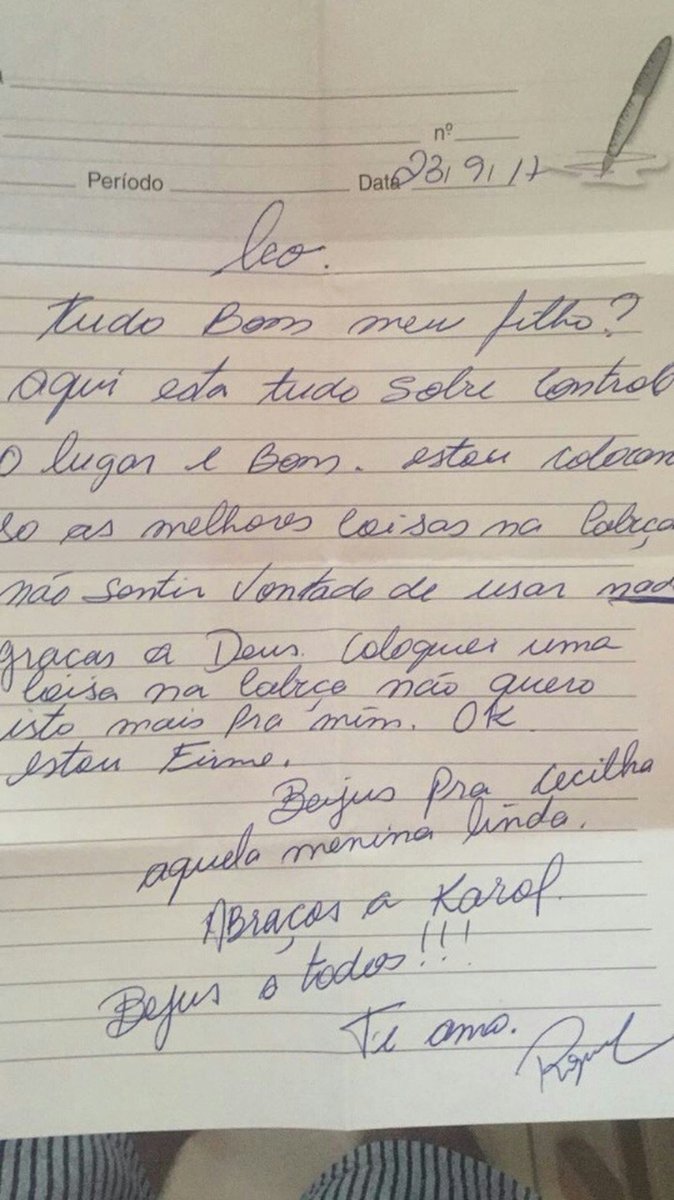 nº
Período Data 23/9/17
Leo.
Tudo Bom meu filho?
Aqui esta tudo sobre Control
O lugar e Bom. estou colocan
do as melhores Coisas na Cabeça
não Sentir Vontade de usar nad
graças a Deus. Coloquei uma
Coisa na Cabeça não quero
isto mais Pra mim. OK
estou Firme.
Beijus Pra Cecilha
aquela menina linda.
Abraços a Karol.
Bejus a todos!!!
Te amo.